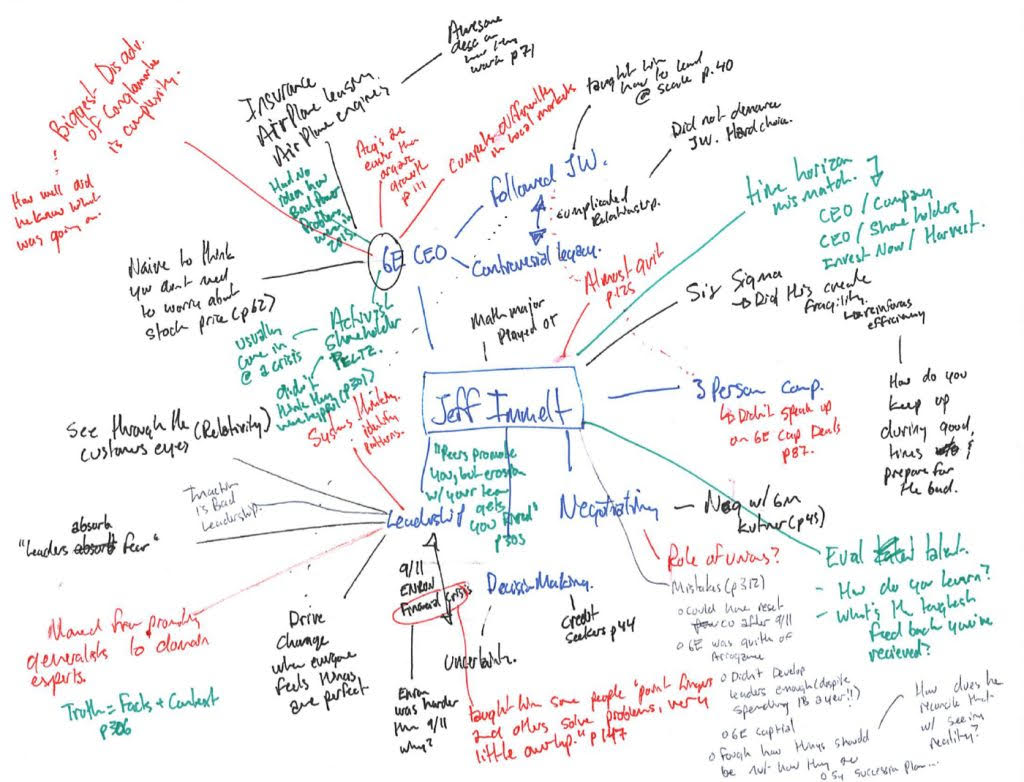 Biggest Disadv.
of Conglomorate
is complexity.
How well did
he know what
was going on.
Insurance
Airplane leasing
Airplane engines
Awesome
desc on
how they
work p71
Acq's are
easier than
organic
growth
p111
Compete differently
in local markets
Had No
idea how
Bad Power
Problems
were in
2015.
taught him
how to lead
@ scale p.40
Followed J.W.
Did not denounce
JW. Hard choice.
Complicated
Relationship.
Controversial legacy.
GE CEO
time horizon
mismatch.
CEO / Company
CEO / Share holders
Invest Now / Harvest.
Naive to think
you don't need
to worry about
stock price (p62)
Almost quit
p.125
Six Sigma
→ Did this create
fragility.
efficiency
Math major
Played OT
Activist
Shareholder
PELTZ.
usually
come in
@ a crisis
didn't
think they
were happen (p301)
Systems thinking
identify
patterns.
Jeff Immelt
3 Person Comp.
↳ Didn't speak up
on GE Cap Deals
p87.
How do you
keep up
during good
times &
prepare for
the bad.
See through the
customers eyes (Relativity)
Inaction
is Bad
Leadership.
absorb
"Leaders absorb fear"
Leadership
"Peers promote
you, but erosion
w/ your team
gets
you fired"
p303
Negotiating
Neg w/ GM
Kutner (p45)
Role of unions?
Eval talent.
- How do you learn?
- What's the toughest
feedback you've
recieved?
Moved from promoting
generalists to domain
experts.
Truth = Facts + Context
p306
Drive
Change
when everyone
feels things
are perfect
9/11
ENRON
Financial Crisis
Enron
was harder
than 9/11
why?
Decision Making.
Uncertainty.
Credit
seekers p44
taught him some people "point fingers
and others solve problems, very
little overlap." p147
Mistakes (p312)
o Could have reset
after 9/11
o GE was guilty of
Arrogance
o Didn't Develop
leaders enough (despite
spending 1B a year!!)
o GE capital
o how things should
be not how they are
o succession plan...
How does he
reconcile that
w/ seeing
reality?